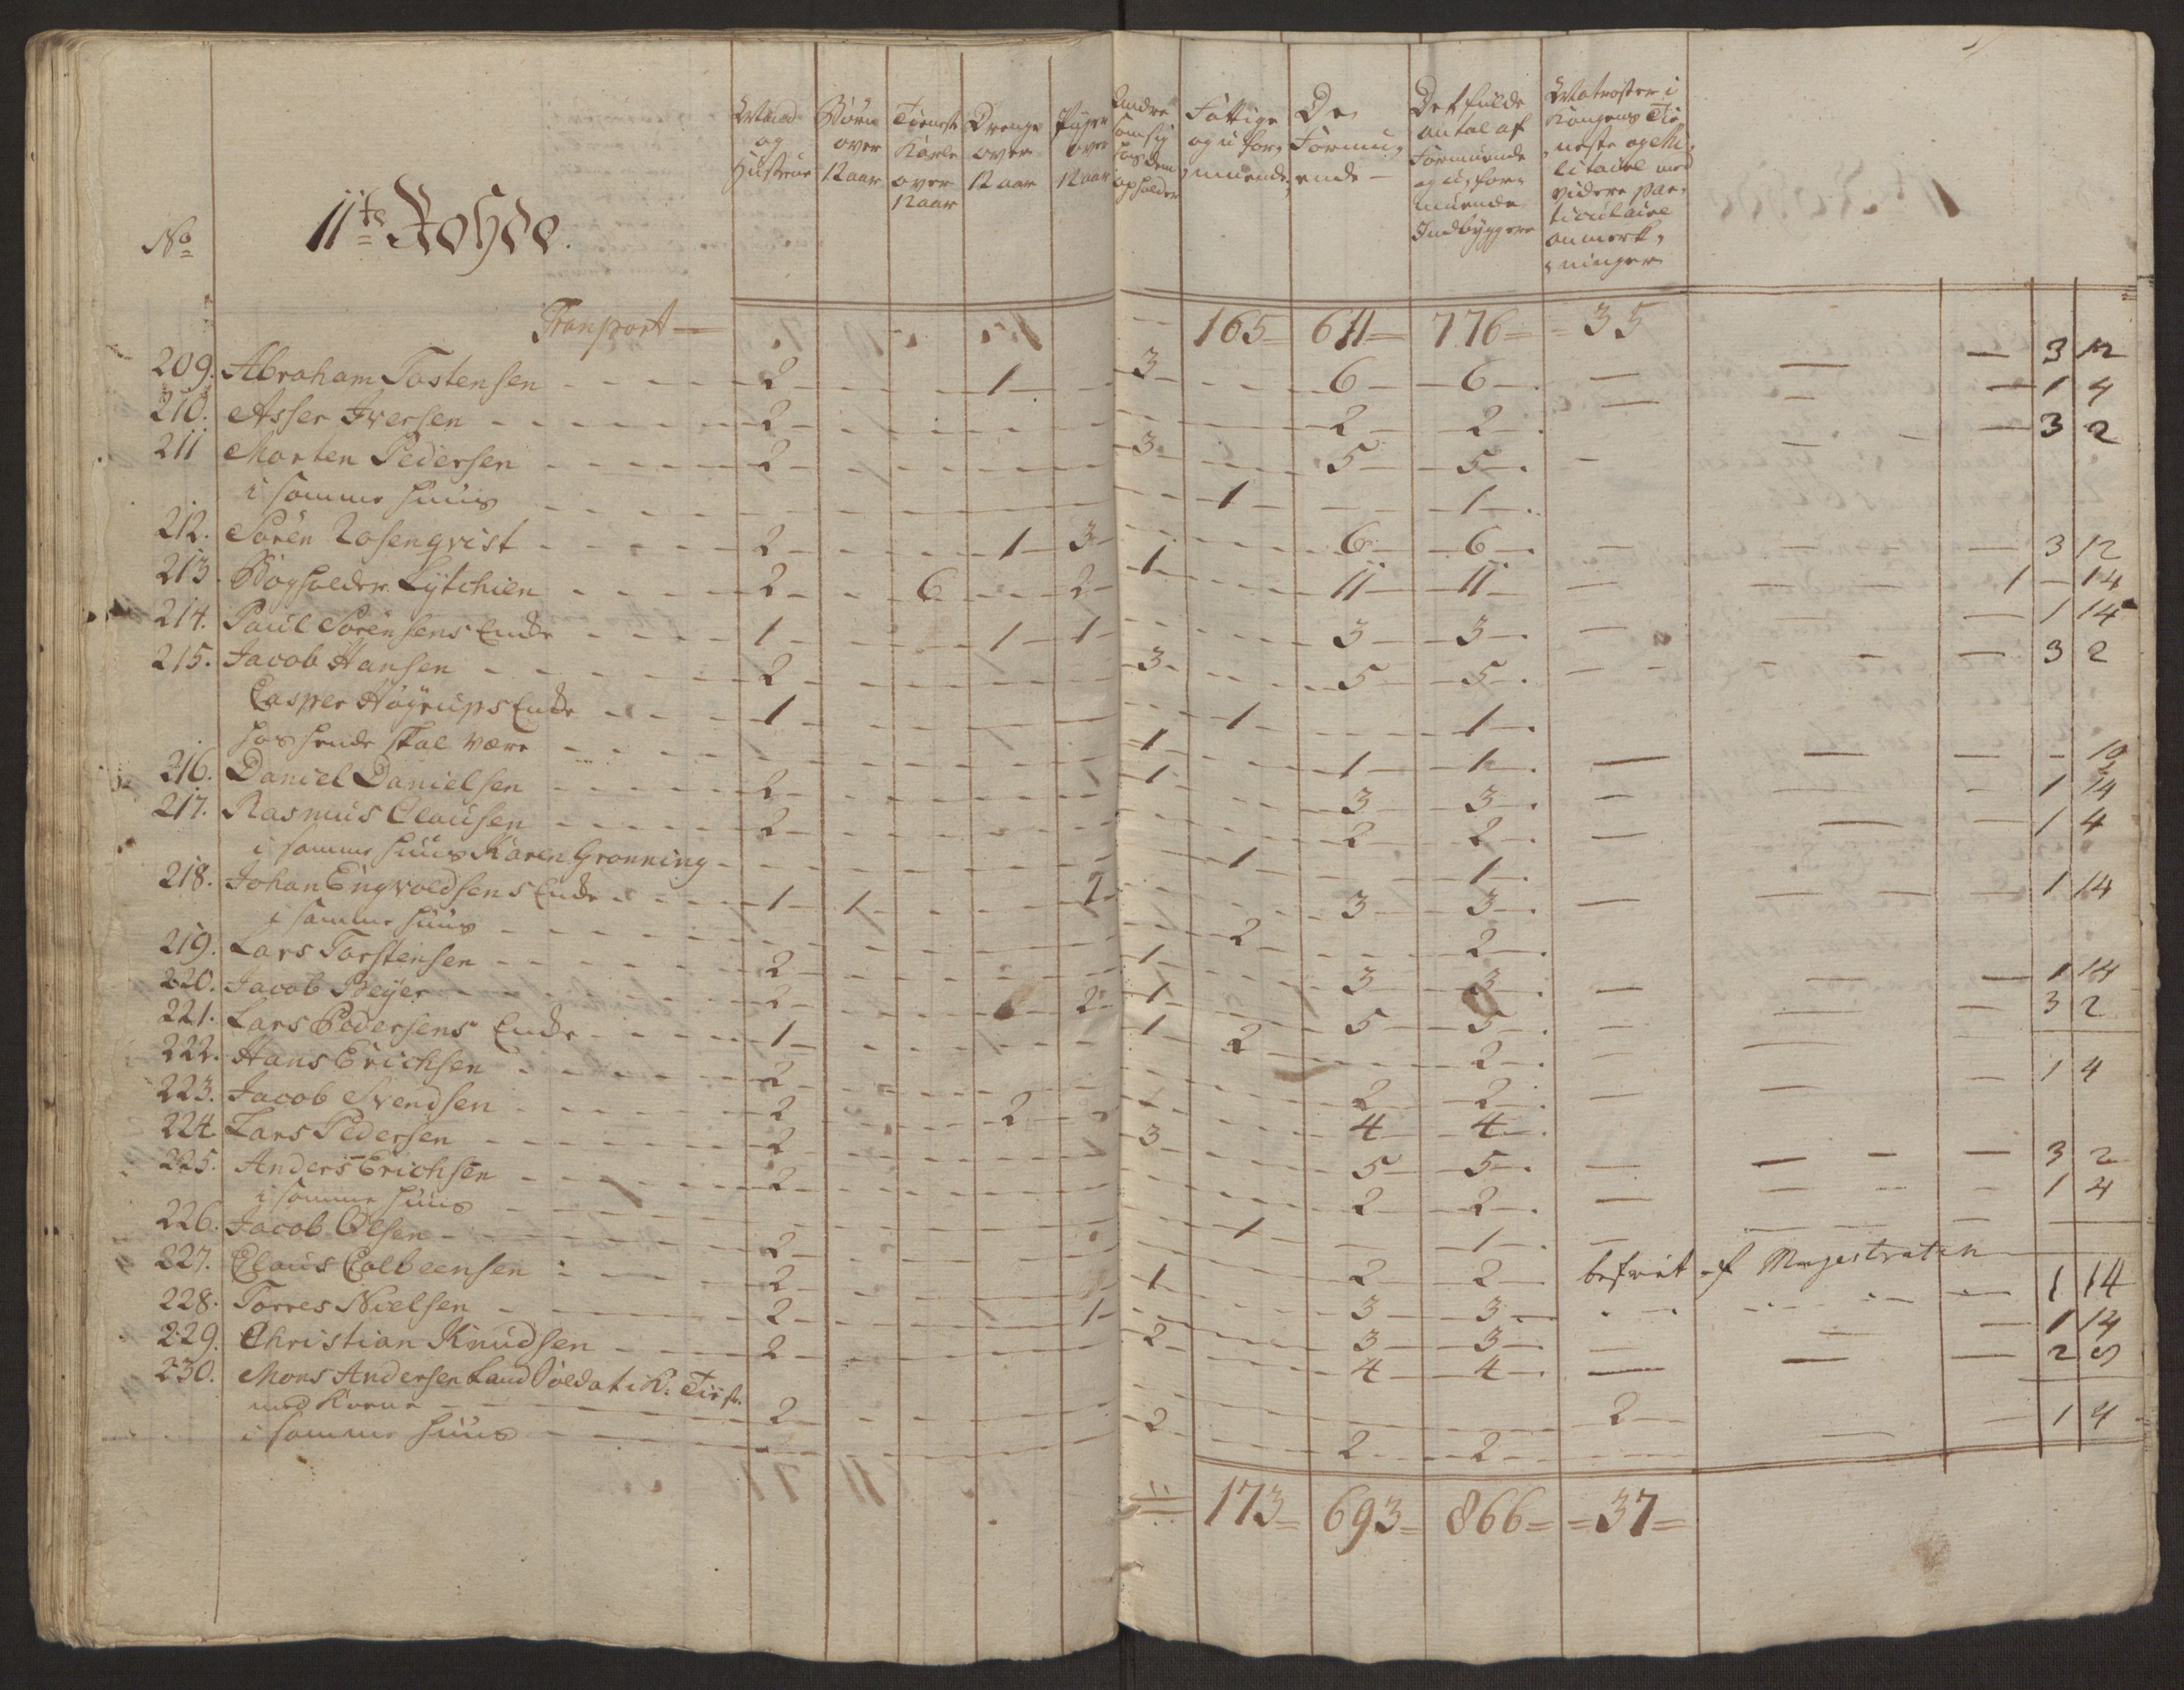 No 11te Rohde.
Mand og Hustrue
Börn over 12 aar
Tieneste Karle over 12 aar
Drenge over 12 aar
Piger over 12 aar
Andre som sig hos dem opholder
Fattige og u for, muende
De Formu, ende
Det fulde antal af Formuende og u, for, muende Indbyggere
Matroser i Kongens Tie, neste og Mi, litaire med videre par, ticulaire anmerk, ninger
Transport — 165 611 776 35
209. Abraham Tostensen 2 1 3 6 6 3 12
210. Asser Iversen 2 2 2 1 4
211 Morten Pedersen 2 3 5 5 3 2
i samme huus 1 1
212. Sören Rosenqvist 2 1 3 6 6 3 12
213. Bogholder Lytchien 2 6 2 1 11 11 1 14
214. Paul Sörensens Enke 1 1 1 3 3 1 14
215. Jacob Hansen 2 3 5 5 3 2
Casper Höyrups Enke 1 1 1
hos hende skal være 1 1 1 10
216. Daniel Danielsen 2 1 3 3 1 14
217. Rasmus Clausen 2 2 2 1 4
i samme huus Karen Gronning 1 1
218. Johan Engvoldsens Enke 1 1 1 3 3 1 14
i samme huus 2 2
219. Lars Torstensen 2 1 3 3 1 14
220. Jacob Beyer 2 2 1 5 5 3 2
221. Lars Pedersens Enke 1 1 2 2
222. Hans Erichsen 2 2 2 1 4
223. Jacob Svendsen 2 2 4 4
224 Lars Pedersen 2 3 5 5 3 2
225. Anders Erichsen 2 2 2 1 4
i samme huus 1 1
226. Jacob Olsen 2 2 2 befriet af Magistraten
227. Claus Colbeensen 2 1 3 3 1 14
228. Torres Nielsen 2 1 3 3 1 14
229. Christian Knudsen 2 2 4 4 2 8
230. Mons Andersen Land Soldat i K: Tiest.
med Kone 2 2
i samme huus 2 2 2 1 4
173 693 866 37